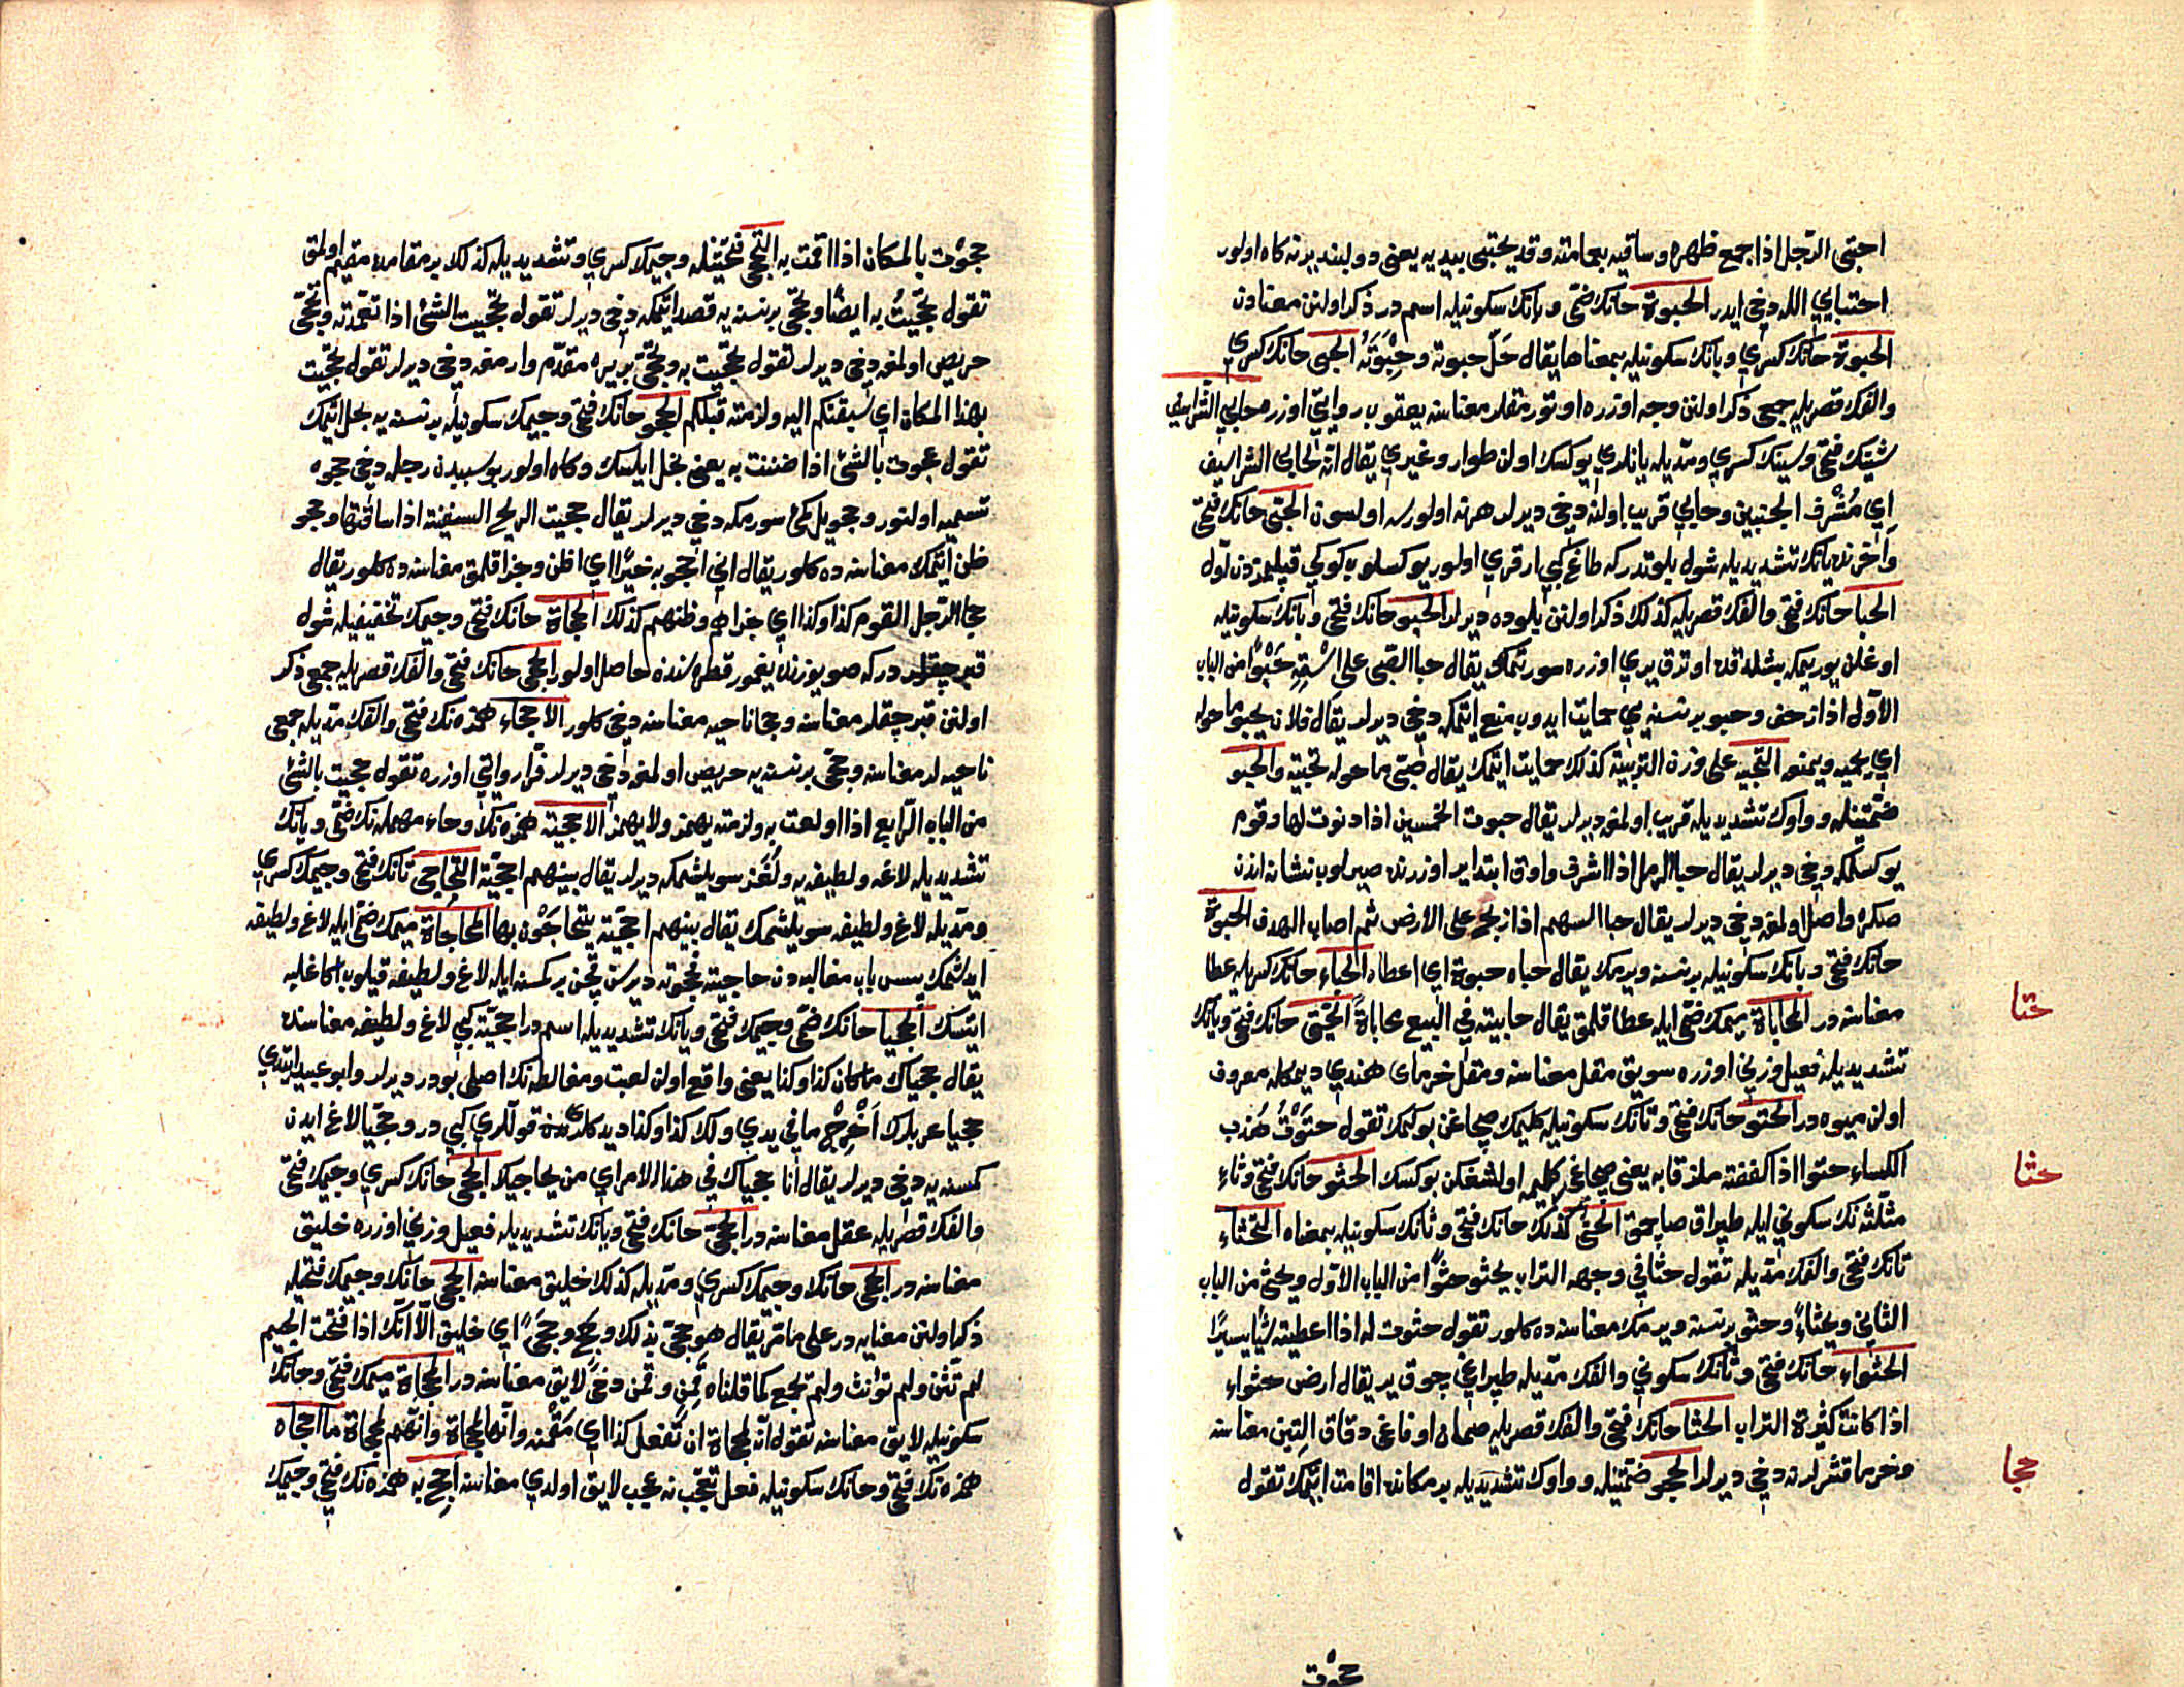 احتبى الرّجل اذا جمع ظهره وساقيه بعامته وقد يحتبى بيديه يعنى دولبند يرنه كاه اولور
احتباي الله دخي ايدر الحبوة حانك ضمّى و بانك سكونيله اسم در ذكر اولنن معنادن
الحبوة حانك كسري و بانك سكونيله بمعناها يقال حَلّ حبوته و حِبْوَتَهُ الحبى حانك كسري
والفك قصريله جمع ذكر اولنن وجه اوزره اوتورمقلر معناسنه يعقوب روايتى اوزره حابي الشراسيف
شينك فتحى وسينك كسري ومدّيله يانلري يوكسك اولن طوار وغيري يقال انه لحابي الشراسيف
اي مُشْرف الجنبين وحابي قريب اولنه دخي ديرلر هرنه اولورسه اولسون الحبّى حانك فتحى
وآخرنده يانك تشديديله شول بلوتدر كه طاغ كبي ارقري اولور يوكسلوب كوكي قپلمزدن اول
الحبا حانك فتحى والفك قصريله كذلك ذكر اولنن بلوده ديرلر الحبو حانك فتحى و بانك سكونيله
اوغلن يوريمكه بشلدقده اوترق يري اوزره سورتمك يقال حبا الصّبي على اسْتِهِ حَبْوًا من الباب
الاوّل اذا زحف وحبو بر نسنه يي حمايت ايدوب منع ايتمكه دخي ديرلر يقال فلان يحبو ما حوله
اي يحميه ويمنعه التحبيه على وزن التربية كذلك حمايت ايتمك يقال حبّى ما حوله تحبية والحبو
ضمّتينله و واوك تشديديله قريب اولمغه ديرلر يقال حبوت الخمسين اذا دنوت لها وقوم
يوكسلمكه دخي ديرلر يقال حبا الرمل اذا اشرف واوق ابتدا ير اوزرنده صيرلوب نشانه اندن
صكره واصل اولمغه دخي ديرلر يقال حبا السهم اذا زلج على الارض ثم اصاب الهدف الحبوة
حانك فتحى و بانك سكونيله بر نسنه ويرمك يقال حباه حبوة اي اعطاه الحباء حانك كسريله عطا
معناسنه در المحاباة ميمك ضمّى ايله عطا قلمق يقال حابيته في البيع محاباةً الحَتِيّ حانك فتحى و يانك
تشديديله فعيل وزني اوزره سويق مقل معناسنه ومقل خرماي هندي ديمكله معروف
اولن ميوه در الحتو حانك فتحى و تانك سكونيله كليمك صچاغن بوكمك تقول حَتَوْتُ هُدْب
الكساء حتوا اذا كففته ملزقا به يعنى صچاغى كليمه اولشدقن بوكسك الحثو حانك فتحى و ثاء
مثلّثه نك سكوني ايله طپراق صاچمق الحثى كذلك حانك فتحى و ثانك سكونيله بمعناه التحثاء
تانك فتحى والفك مدّيله تقول حثا في وجهه التراب يحثو حثوًا من الباب الاوّل ويحثى من الباب
الثاني ويحثاءً وحثو بر نسنه ويرمك معناسنه ده كلور تقول حثوت له اذا اعطيته شيأ يسيرًا
الحثواء حانك فتحى و ثانك سكوني والفك مدّيله طپراغي چوق ير يقال ارض حثواء
اذا كانت كثيرة التراب الحثا حانك فتحى والفك قصريله صمان اوفاغى دقاق التبن معناسنه
وخرما قشرلرنه دخي ديرلر الحجو ضمّتينله و واوك تشديديله بر مكانده اقامت ايتمك تقول
حتا
حثا
حجا
حجوت
حجوت بالمكان اذا اقمت به التحجّي فتحتينله وجيمك كسري وتشديديله كذلك بر مقامده مقيم اولمق
تقول تحجّيتُ به ايضًا وتحجّي بر نسنه يه قصد ايتمكه دخي ديرلر تقول تحجّيت الشئ اذا تعمّدته وتحجّى
حريص اولمغه دخي ديرلر تقول تحجّيت به وتحجّي بر يره مقدّم وارمغه دخي ديرلر تقول تحجّيت
بهذا المكان اي سبقتكم اليه ولزمته قبلكم الحجو حانك فتحى وجيمك سكونيله بر نسنه يه بخل ايتمك
تقول حجوت بالشئ اذا ضننت به يعنى بخل ايلسك وكاه اولور بو سببدن رجله دخي حجوه
تسميه اولنور وحجو يل كمئ سورمكه دخي ديرلر يقال حجت الريح السفينة اذا ساقتها وحجو
ظن ايتمك معناسنه ده كلور يقال اني احجو به خيرًا اي اظن وجزا قلمق معناسنه ده كلور يقال
حجا الرّجل القوم كذا وكذا اي جزاهم وظنهم كذلك الحجاة حانك فتحى وجيمك تخفيفيله شول
قبرچقلر در كه صو يوزنده يغمور قطره سنده حاصل اولور الحجى حانك فتحى والفك قصريله جمع ذكر
اولنن قبرچقلر معناسنه وحجا ناحيه معناسنه دخي كلور الاحجاء همزه نك فتحى والفك مدّيله جمعى
ناحيه لر معناسنه وحجى بر نسنه يه حريص اولمغه دخي ديرلر فرّا روايتى اوزره تقول حجيت بالشئ
من الباب الرّابع اذا اولعت به ولزمته يهمز ولا يهمز الاحجيّة همزه نك وحاء مهمله نك ضمّى و يانك
تشديديله لاغه ولطيفه يه ولغز سويلشمكه ديرلر يقال بينهم احجيّة التحاجي تانك فتحى وجيمك كسري
ومدّيله لاغ ولطيفه سويلشمك يقال بينهم احجيّة يتحاجَوْن بها المحاجاة ميمك ضمّى ايله لاغ ولطيفه
ايدشمك يسس باب مغالبه دن حاجيته فحجوته ديرسن قچن بر كمسنه ايله لاغ ولطيفه قيلوب اكا غلبه
ايتسك الحجيا حانك ضمّى وجيمك فتحى و يانك تشديديله اسم در احجيّة كبي لاغ ولطيفه معناسنده
يقال حجياك ما كان كذا وكذا يعنى واقع اولن لعبت ومغالطه نك اصلى بودر ديرلر وابو عبيد ايتدي
حجيا عربلرك اَخْرِجْ ما في يدي ولك كذا وكذا ديدكلرنده قوللري كبي در وحجيّا لاغ ايدن
كمسنه يه دخي ديرلر يقال انا حجياك في هذا الامر اي من يحاجيك الحجى حانك كسري وجيمك فتحى
والفك قصريله عقل معناسنه در الحجيّ حانك فتحى و يانك تشديديله فعيل وزني اوزره خليق
معناسنه در الحجي حانك وجيمك كسري ومدّيله كذلك خليق معناسنه الحجى حانك وجيمك فتحيله
ذكر اولنن معنايه در على ما مرّ يقال هو حجيّ بذلك وحجٍ وحجًى اي خليق الّا انّك اذا فتحت الجيم
لم تثن ولم تؤنث ولم تجمع كما قلناه قمِن وقمن دخي لايق معناسنه در المحجاة ميمك فتحى وحانك
سكونيله لايق معناسنه تقول انّه لمحجاة ان تفعل كذا اي مَقْمنه وانّها لمحجاة وانّهم لمحجاة ما احجاه
همزه نك فتحى وحانك سكونيله فعل تعجّب نه عجب لايق اولدي معناسنه اَحْجِ به همزه نك فتحى وجيمك